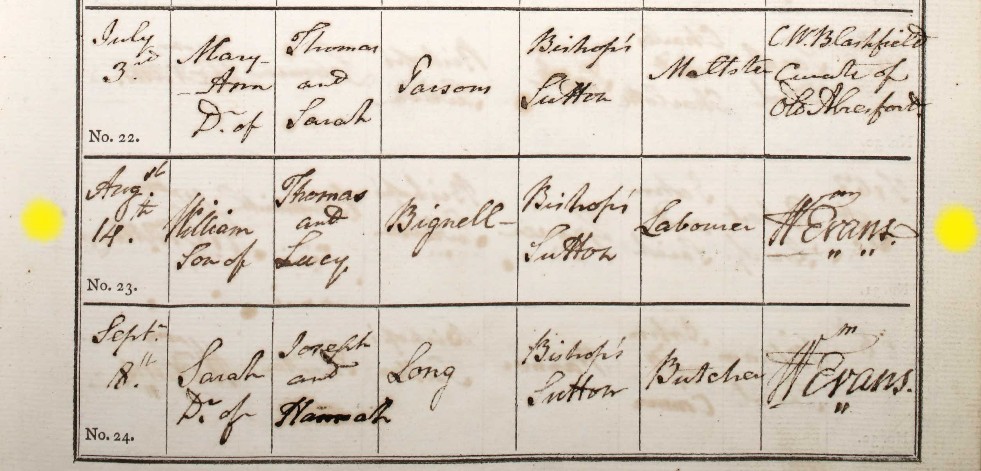 July
3.rd
No. 22.
Mary-
Ann
Dr. of
Thomas
and
Sarah
Parsons
Bishop's
Sutton
Maltster
C.W. Blashfield
Curate of
Old Alresford.
Augst.
14.th
No. 23.
William
Son of
Thomas
and
Lucy
Bignell
Bishop's
Sutton
Labourer
Wm Evans.
Septr.
8.th
No. 24.
Sarah
Dr. of
Joseph
and
Hannah
Long
Bishop's
Sutton
Butcher
Wm Evans.